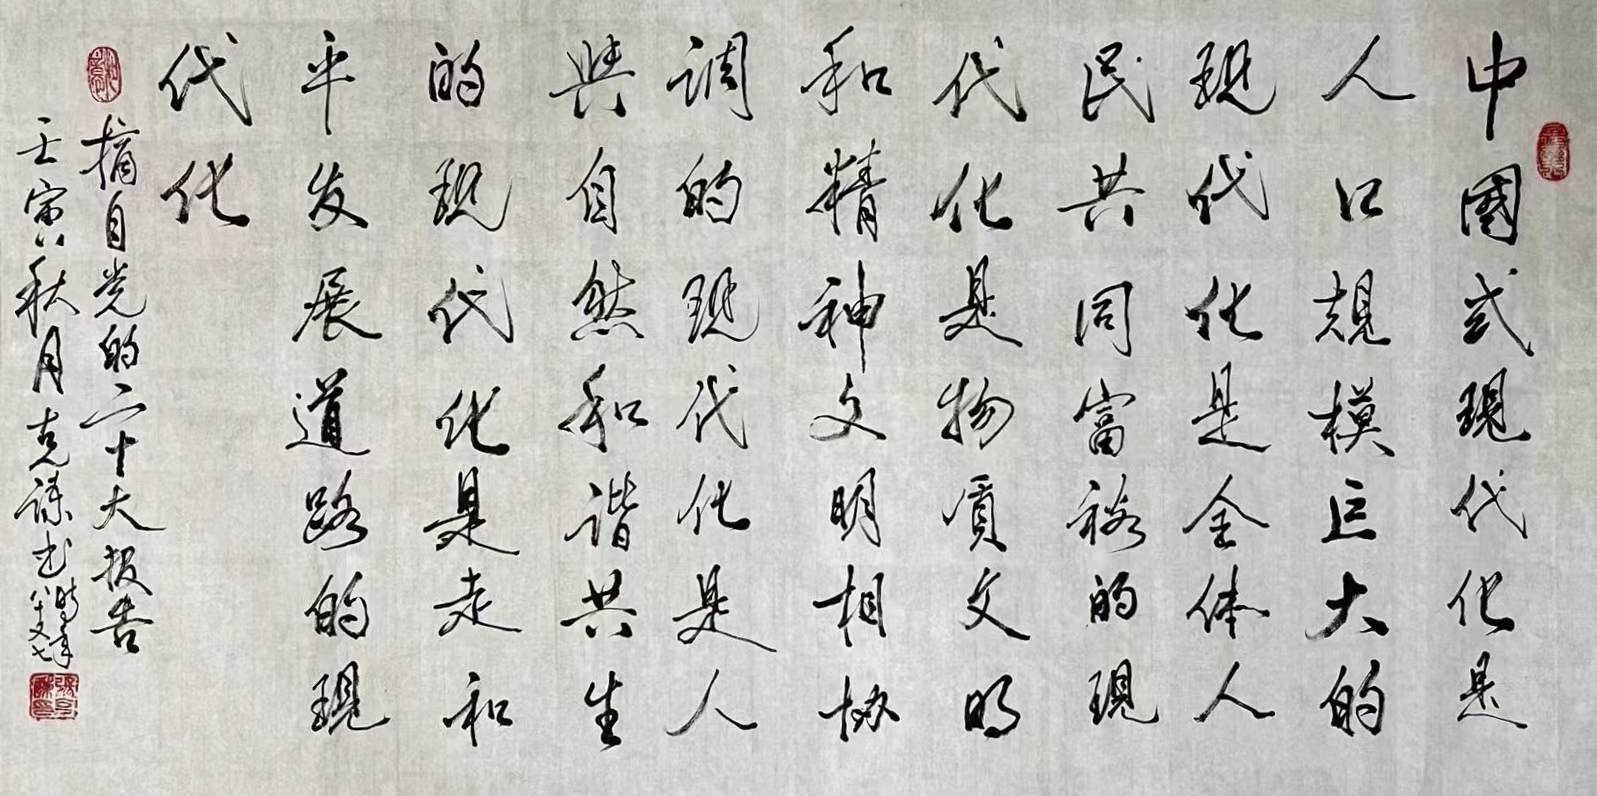 中國式現代化是
人口規模巨大的
現代化是全体人
民共同富裕的現
代化是物質文明
和精神文明相協
调的現代化是人
與自然和谐共生
的現代化是走和
平发展道路的現
代化
摘自党的二十大报告
壬寅秋月克谦书时年八十又七